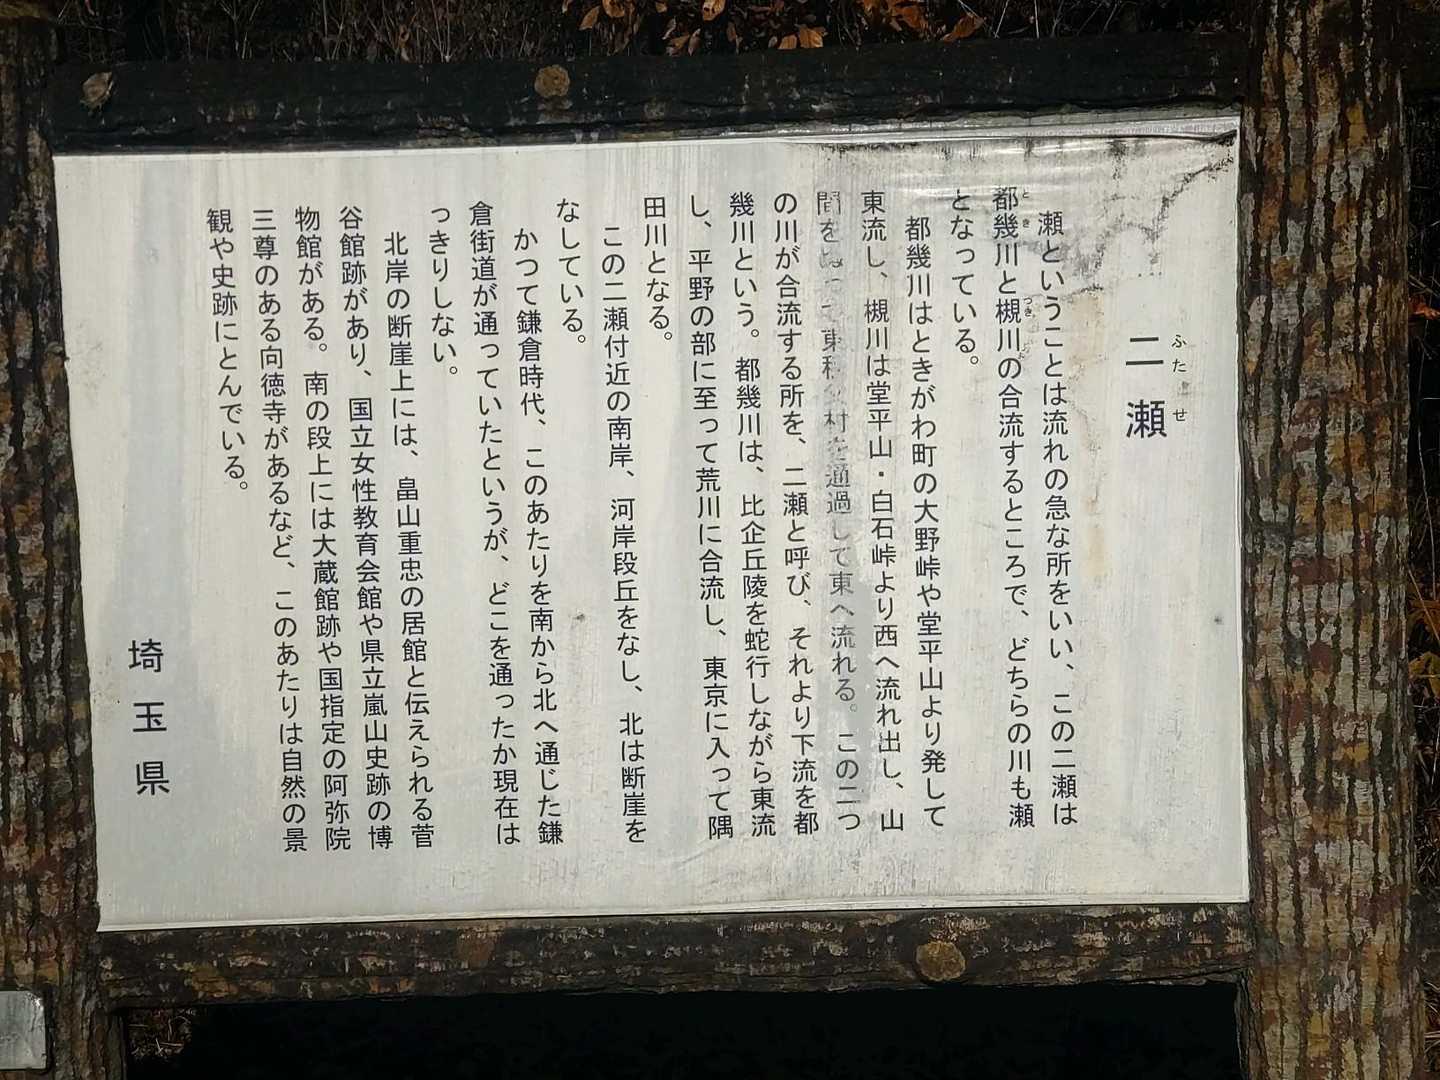 二瀬
ふたせ
瀬ということは流れの急な所をいい、この二瀬は
都幾川と槻川の合流するところで、どちらの川も瀬
とき
つき
となっている。
都幾川はときがわ町の大野峠や堂平山より発して
東流し、槻川は堂平山・白石峠より西へ流れ出し、山
間を 東秩父村を通過して東へ流れる。この二つ
の川が合流する所を、二瀬と呼び、それより下流を都
幾川という。都幾川は、比企丘陵を蛇行しながら東流
し、平野の部に至って荒川に合流し、東京に入って隅
田川となる。
この二瀬付近の南岸、河岸段丘をなし、北は断崖を
なしている。
かつて鎌倉時代、このあたりを南から北へ通じた鎌
倉街道が通っていたというが、どこを通ったか現在は
っきりしない。
北岸の断崖上には、畠山重忠の居館と伝えられる菅
谷館跡があり、国立女性教育会館や県立嵐山史跡の博
物館がある。南の段上には大蔵館跡や国指定の阿弥院
三尊のある向徳寺があるなど、このあたりは自然の景
観や史跡にとんでいる。
埼玉県